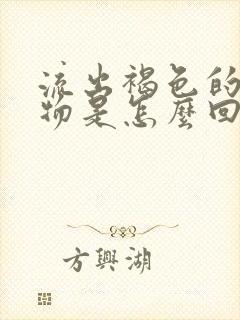 流出褐色的
物是怎麼回
方興湖